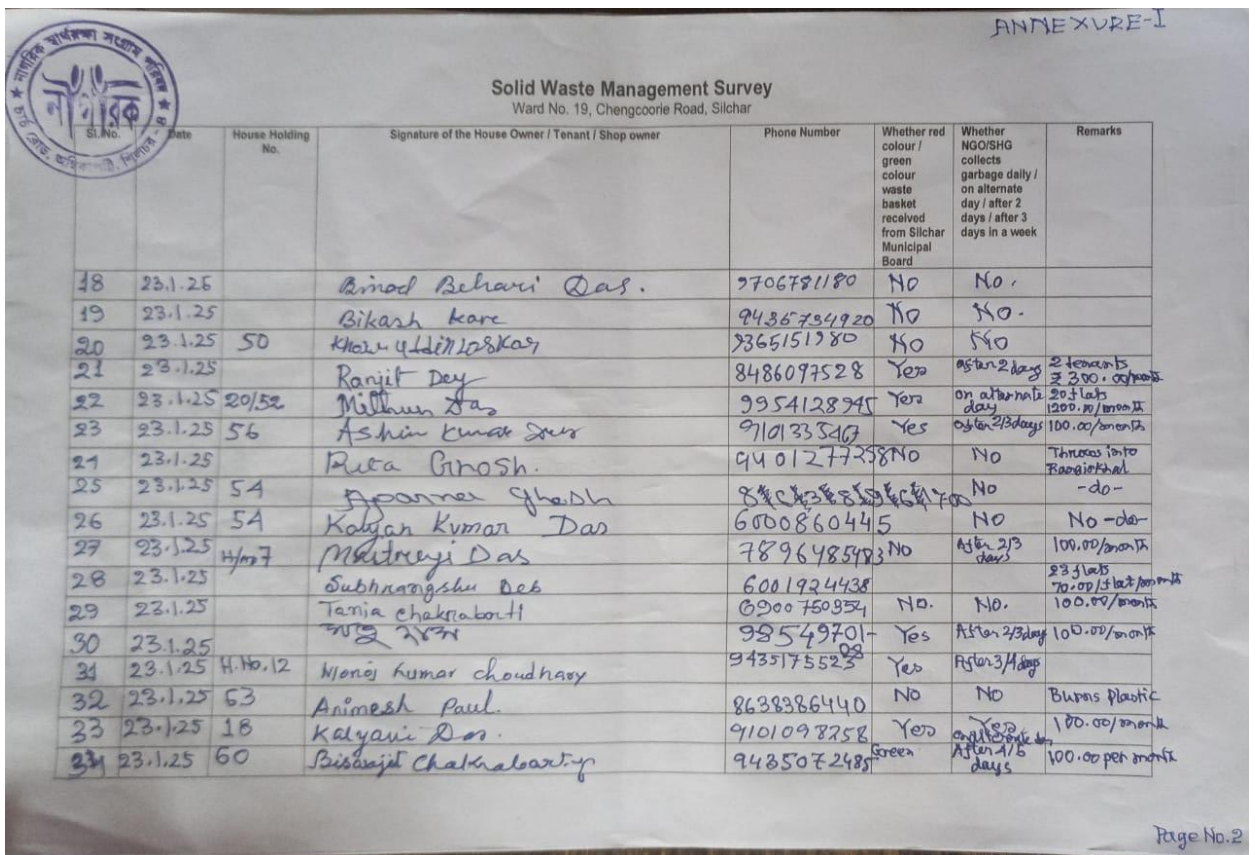 ANNEXURE-I
নাগরিক স্বার্থরক্ষা সংগ্রাম পরিষদ
নাগরিক
Solid Waste Management Survey
Ward No. 19, Chengcoorie Road, Silchar
Sl. No. Date House Holding No. Signature of the House Owner / Tenant / Shop owner Phone Number Whether red colour / green colour waste basket received from Silchar Municipal Board Whether NGO/SHG collects garbage daily / on alternate day / after 2 days / after 3 days in a week Remarks
18 23.1.25 Binod Behari Das. 9706781180 No No.
19 23.1.25 Bikash Kare 9435734920 No No.
20 23.1.25 50 Khairuddin Laskar 9365151980 No No
21 23.1.25 Ranjit Dey 8486097528 Yes After 2 days 2 tenants ₹ 300.00/month
22 23.1.25 20/52 Mithun Das 9954128945 Yes on alternate day 20 flats 1200.00/month
23 23.1.25 56 Ashim Kumar 9101335467 Yes After 2/3 days 100.00/month
24 23.1.25 Rita Ghosh. 9401277258 No No Throws into Rangirkhal
25 23.1.25 54 Aparna Ghosh No -do-
26 23.1.25 54 Kalyan Kumar Das 6000860445 No No -do-
27 23.1.25 Maitreyi Das 7896485483 No After 2/3 days 100.00/month
28 23.1.25 Subhrangshu Deb 6001924438 23 flats 70.00/flat/month
29 23.1.25 Tania Chakraborti 6900750354 No. No. 100.00/month
30 23.1.25 98549701- Yes After 2/3 days 100.00/month
31 23.1.25 H.No.12 Monoj Kumar Choudhary 9435175523 Yes After 3/4 days
32 23.1.25 63 Animesh Paul. 8638386440 No No Burns Plastic
33 23.1.25 18 Kalyani Das. 9101098258 Yes Yes on alternate day 100.00/month
34 23.1.25 60 Biswajit Chakrabarty 9435072485 Green After 4/5 days 100.00 per month
Page No.2